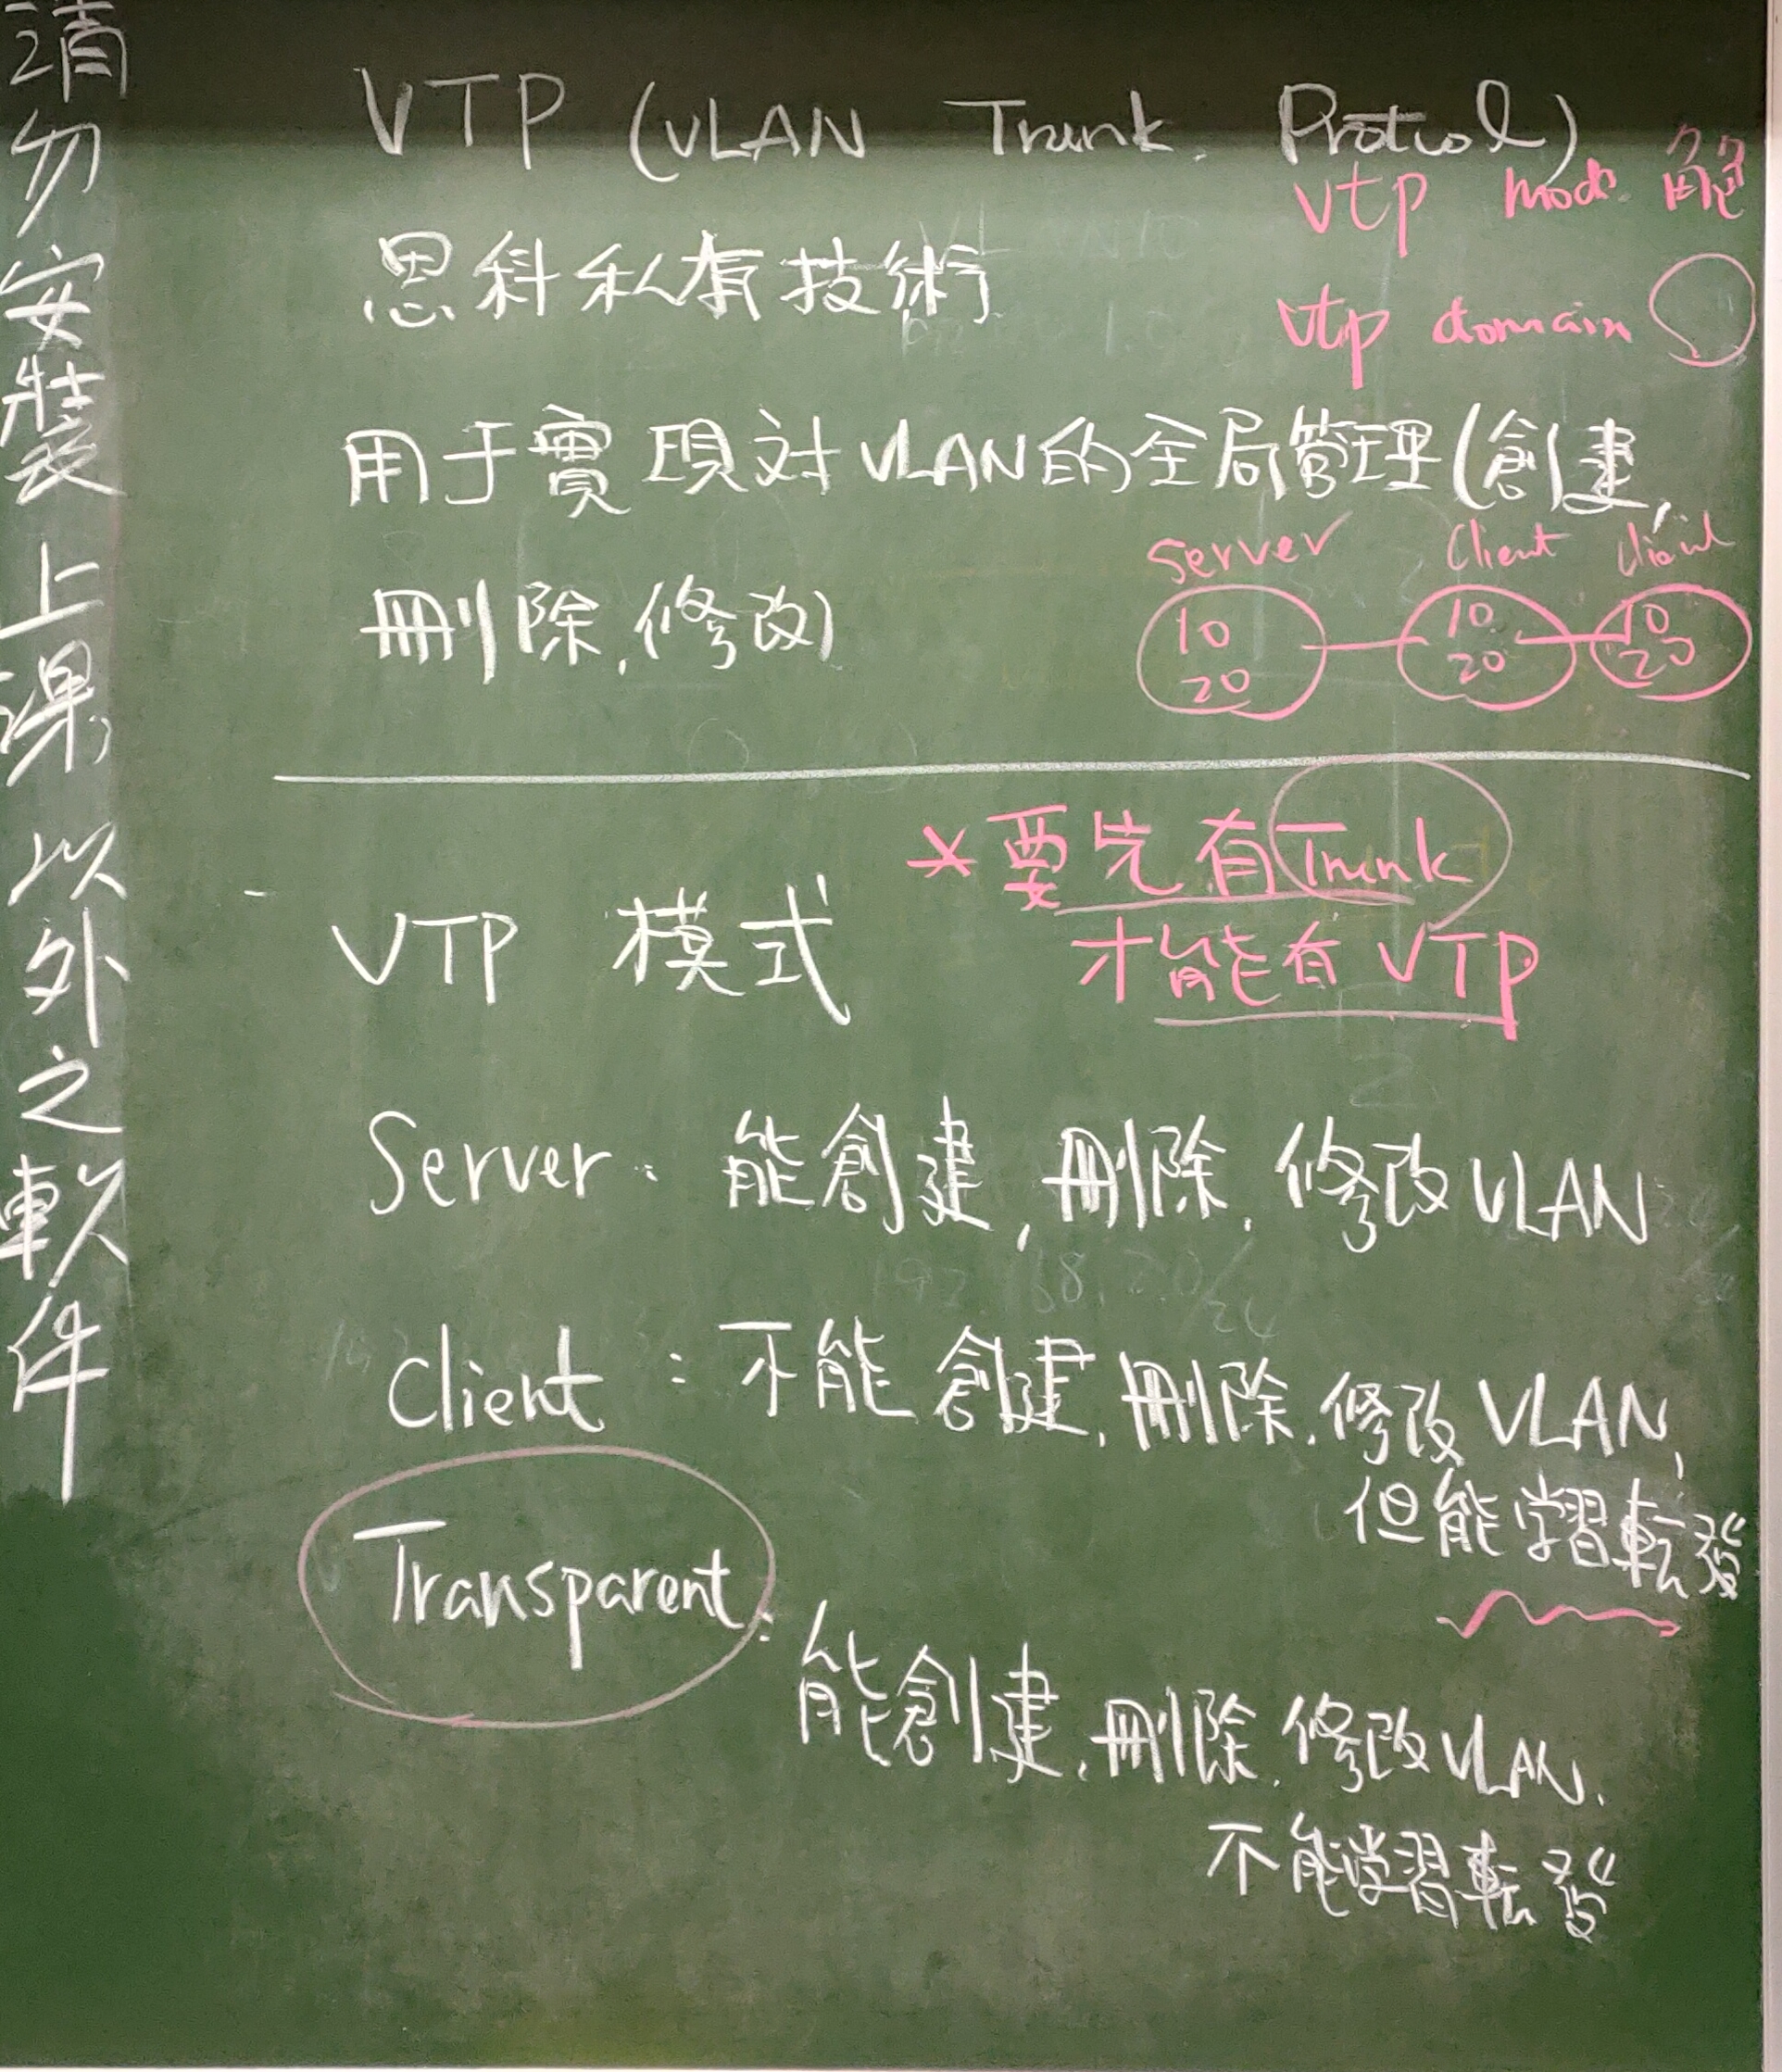 請勿安裝上課以外之軟件
VTP (VLAN Trunk Protocol)
vtp mode
思科私有技術
vtp domain
用于實現对VLAN的全局管理(創建,
Server Client Client
刪除,修改)
10 10 10
20 20 20
*要先有Trunk
VTP 模式
才能有VTP
Server: 能創建,刪除,修改VLAN
Client: 不能創建,刪除,修改VLAN,
但能学習転發
Transparent:
能創建,刪除,修改VLAN.
不能学習転發